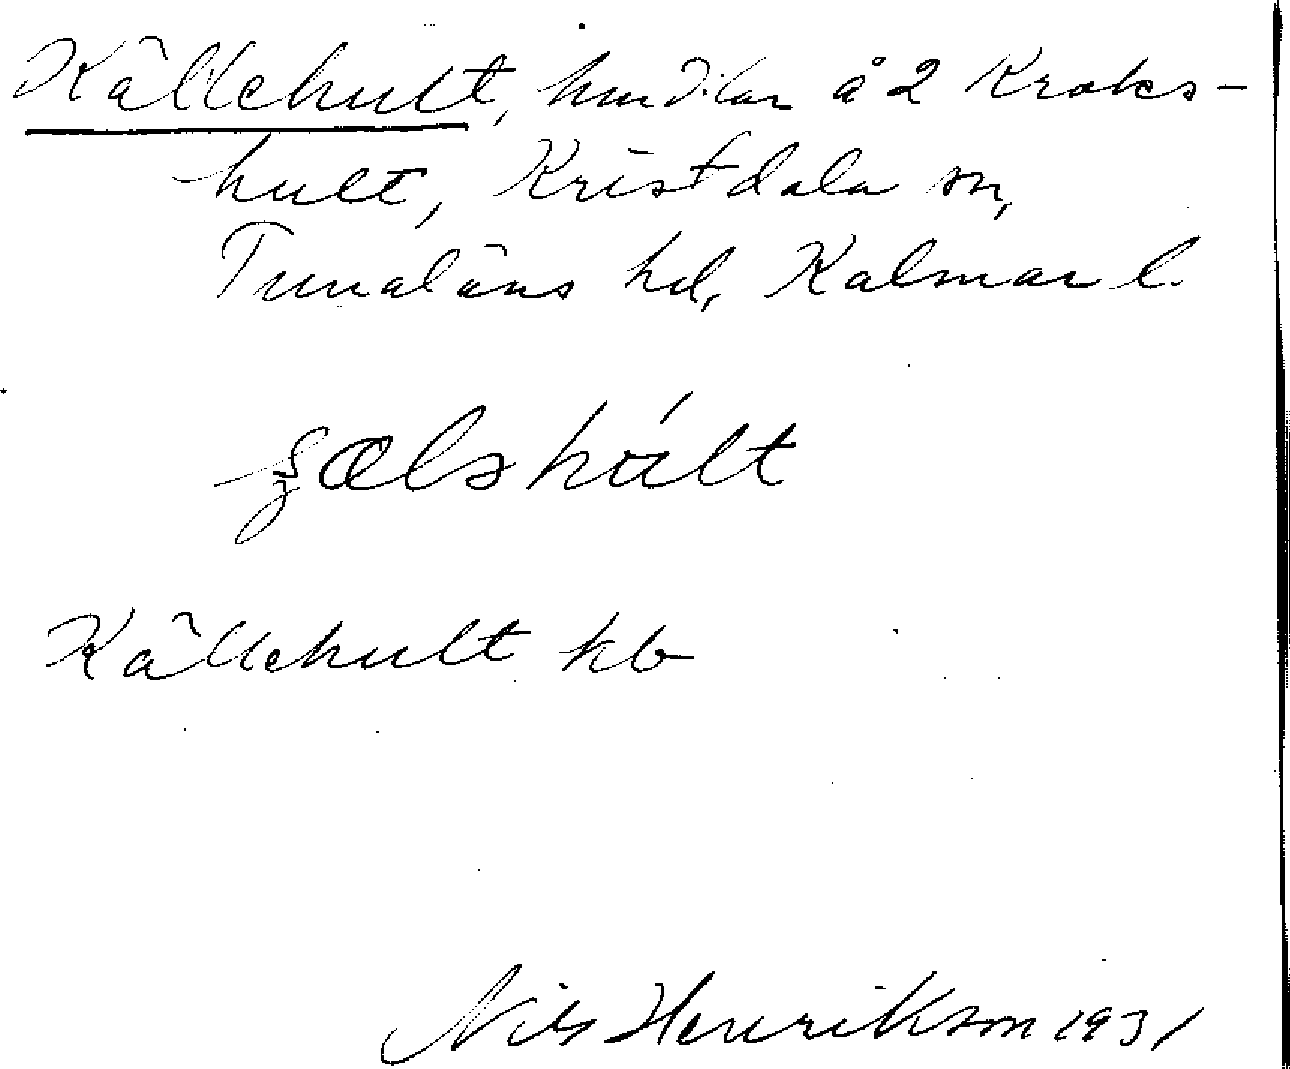 Källehult, hmdlar å 2 Kroks-
hult, Kristdala sn,
Tunaläns hd, Kalmar l.
hult
Källehult kb
Nils Henrikson 1931